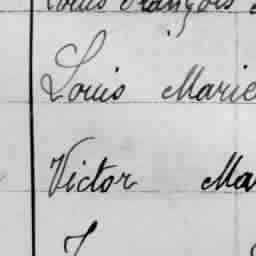 Louis François
Louis Marie
Victor Ma